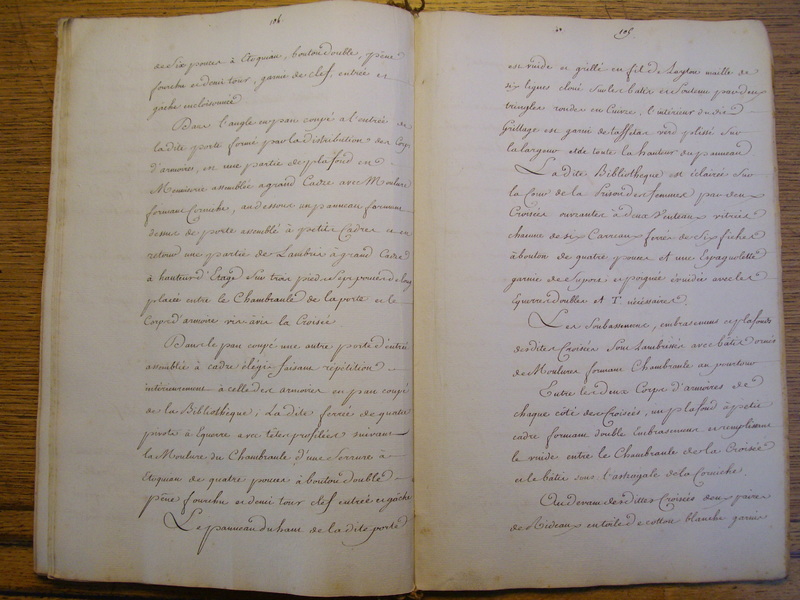 106
de six pouces à Etoquiau, bouton double, pêne
fourchu et demi tour, garnie de clef, entrée et
gâche encloisonnée
Dans l'angle en pan coupé a l'entrée de
la dite porte formé par la distribution des Corps
d'armoires, est une partie de plafond en
Menuiserie assemblée a grand Cadre avec Moulure
formant Corniche, au dessous un panneau formant
dessus de porte assemblé à petits Cadres et en
retour une partie de Lambris à grand Cadre
à hauteur d'Etage sur trois pieds sept pouces de long
placée entre le Chambranle de la porte et le
Corps d'armoire vis à vis la Croisée
Dans le pan coupé une autre porte d'entrée
assemblée à cadre élégi faisant répétition
intérieurement à celle des armoires en pan coupé
de la Bibliothèque; La dite ferrée de quatre
pivots à Equerre avec têtes profilées suivant
la Mouture du Chambranle d'une Serrure à
Etoquiau de quatre pouces à bouton double
pêne fourchu et demi tour clef entrée et gâche
Le panneau du haut de la dite porte
106
est vuide et grillé en fil de Layton maille de
six lignes cloué sur le bâtis et soutenu par deux
tringles rondes en Cuivre, l'intérieur du dit
Grillage est garni de taffetas verd plissé sur
la largeur et de toute la hauteur du panneau
La dite Bibliothèque est éclairée sur
la Cour de la Prison des femmes par deux
Croisées ouvrantes à deux Venteaux vitrées
chacune de six Carreaux ferrée de six fiches
à bouton de quatre pouces et une Espagnolette
garnie de Suport et poignée évuidée avec les
Equerres doubles et T. nécessaires.
Les Soubassements, embrasements et plafonds
desdites Croisées sont Lambrissés avec bâtis ornés
de Moulures formant Chambranle au pourtour
Entre les deux Corps d'armoires de
chaque côté des Croisées, un plafond à petit
cadre formant double Embrasement et remplissant
le vuide entre le Chambranle de la Croisée
et le bâtis sous l'astragale de la Corniche
Au devant desdittes Croisées deux paires
de Rideaux en toile de cotton blanche garnis